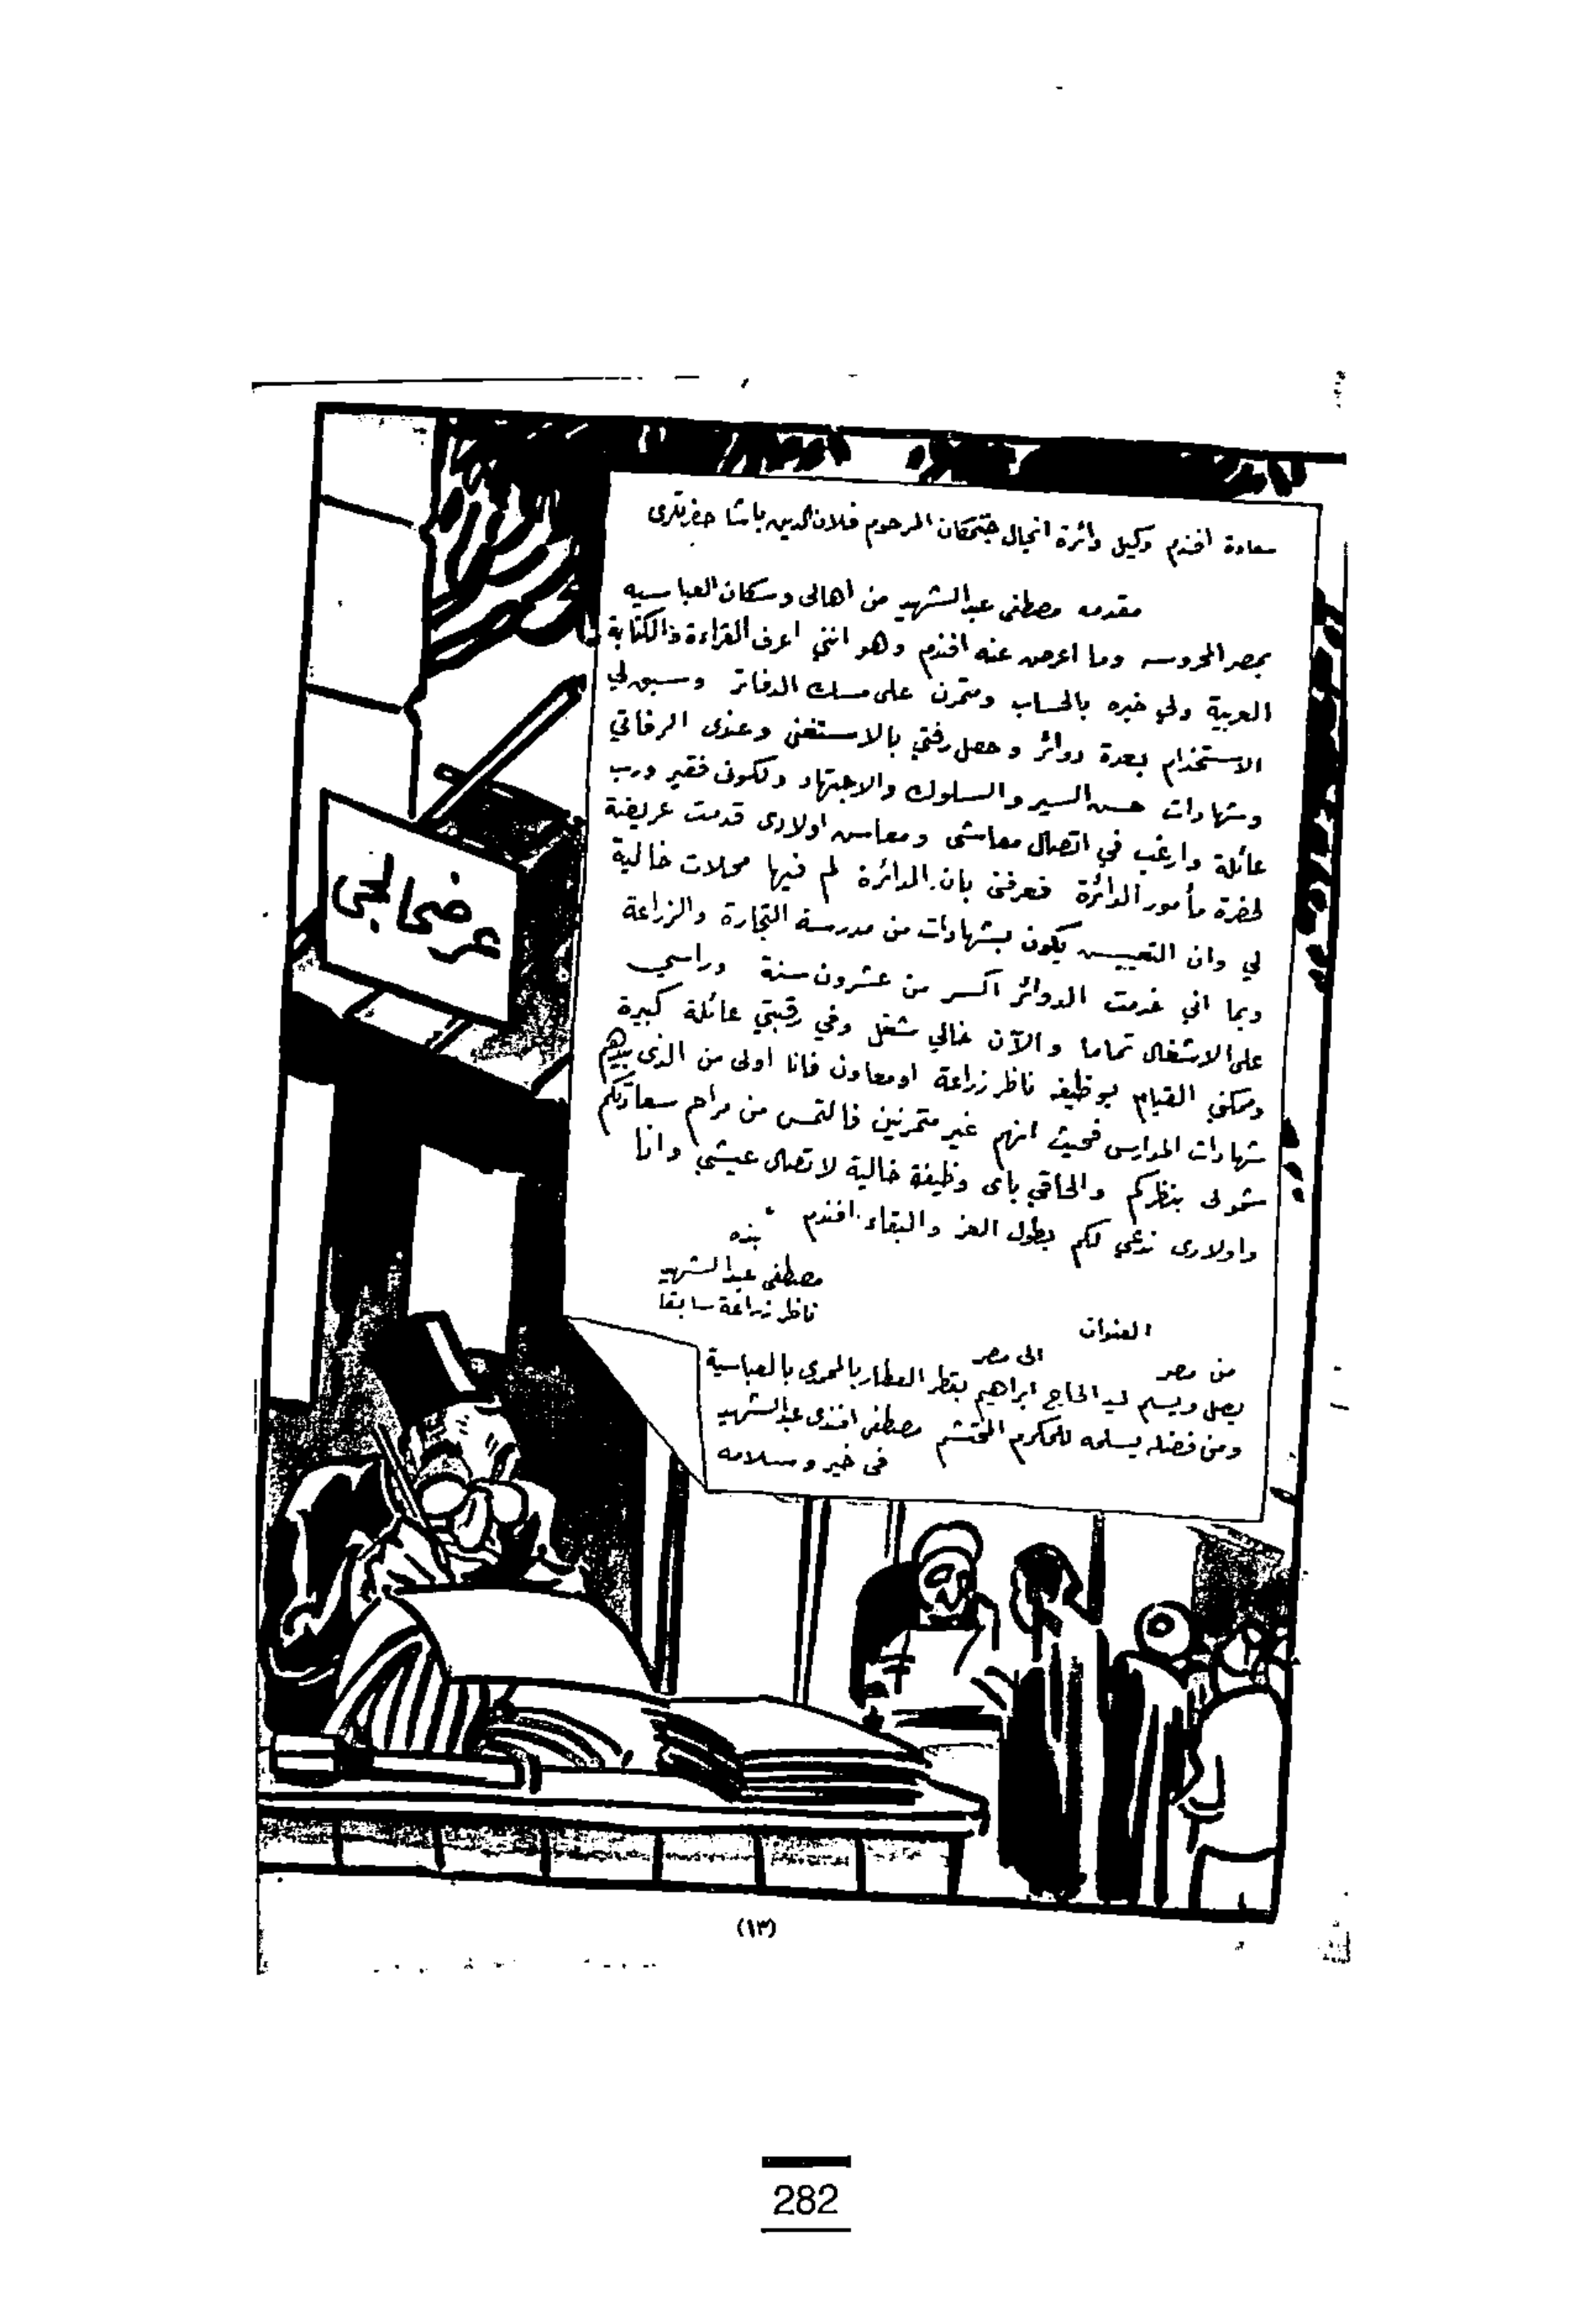 سعادة افندم وكيل دائرة انجال جنتمكان المرحوم فلان الدين باشا حضرتلرى
مقدمه مصطفى عبد الشهيد من اهالى وسكان العباسيه
بمصر المحروسه وما اعرض عنه افندم وهو اننى اعرف القراءة والكتابة
العربية ولي خبره بالحساب ومتمرن على مسك الدفاتر وسبق لي
الاستخدام بعدة دوائر وحصل رفتي بالاستغنى وعندى الرفاتي
وشهادات حسن السير والسلوك والاجتهاد ولكونى فقير ورب
عائلة وارغب في اتصال معاشى ومعاس اولادى قدمت عريضة
لحضرة مأمور الدائرة فعرفنى بان الدائرة لم فيها محلات خالية
لي وان التعيين يكون بشهادات من مدرسة التجارة والزراعة
وبما اني خدمت الدوائر اكسر من عشرون سنة وراسي
على الاشغال تماما والآن خالي شغل وفي رقبتي عائلة كبيرة
ويمكني القيام بوظيفه ناظر زراعة او معاون فانا اولى من الذى بيدهم
شهادات المدارس فحيث انهم غير متمرنين فالتمس من مراحم سعادتكم
شمولى بنظركم والحاقي باى وظيفة خالية لاتصال عيشي وانا
واولادى ندعي لكم بطول العز والبقاء افندم
بنده
مصطفى عبد الشهيد
ناظر زراعة سابقا
العنوان
من مصر الى مصر
يصل ويسلم ليد الحاج ابراهيم بقطر العطار بالمحمدى بالعباسية
ومن فضله يسلمه للمكرم المحتشم مصطفى افندى عبد الشهيد
فى خير وسلامه
عرضحالجى
(١٣)
282